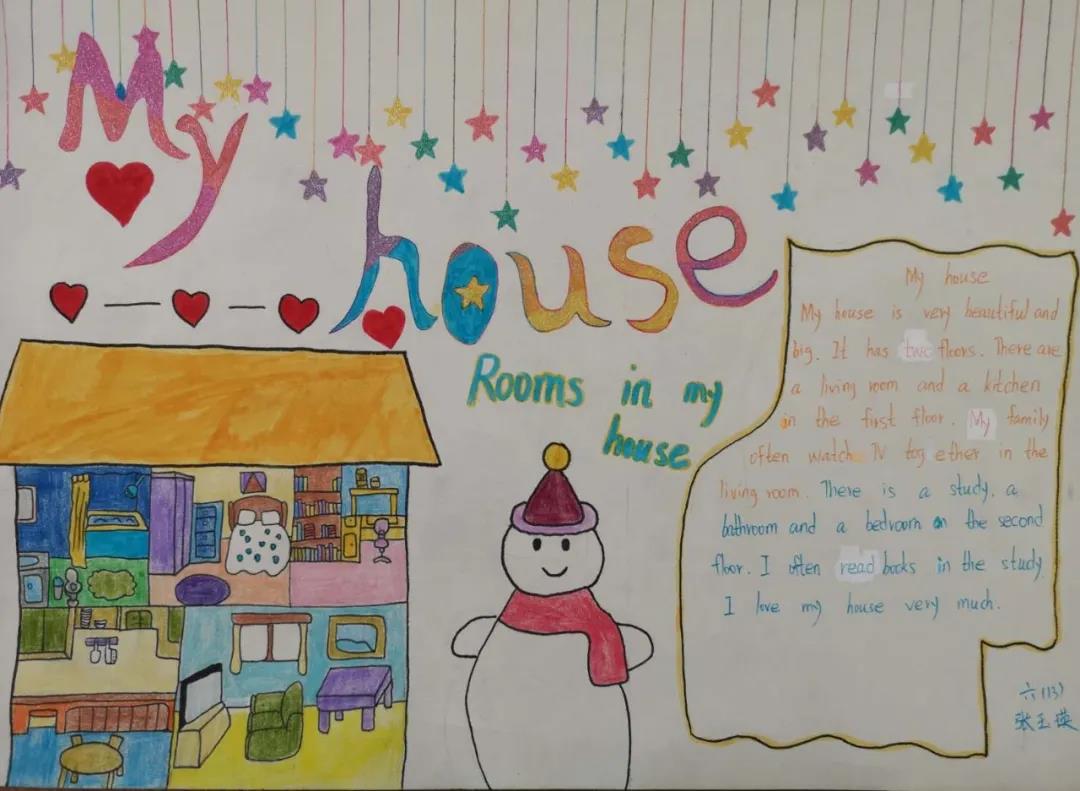 My
house
Rooms in my
house
My house
My house is very beautiful and
big. It has two floors. There are
a living room and a kitchen
in the first floor. My family
often watch TV together in the
living room. There is a study, a
bathroom and a bedroom on the second
floor. I often read books in the study.
I love my house very much.
六(13)
张玉瑛